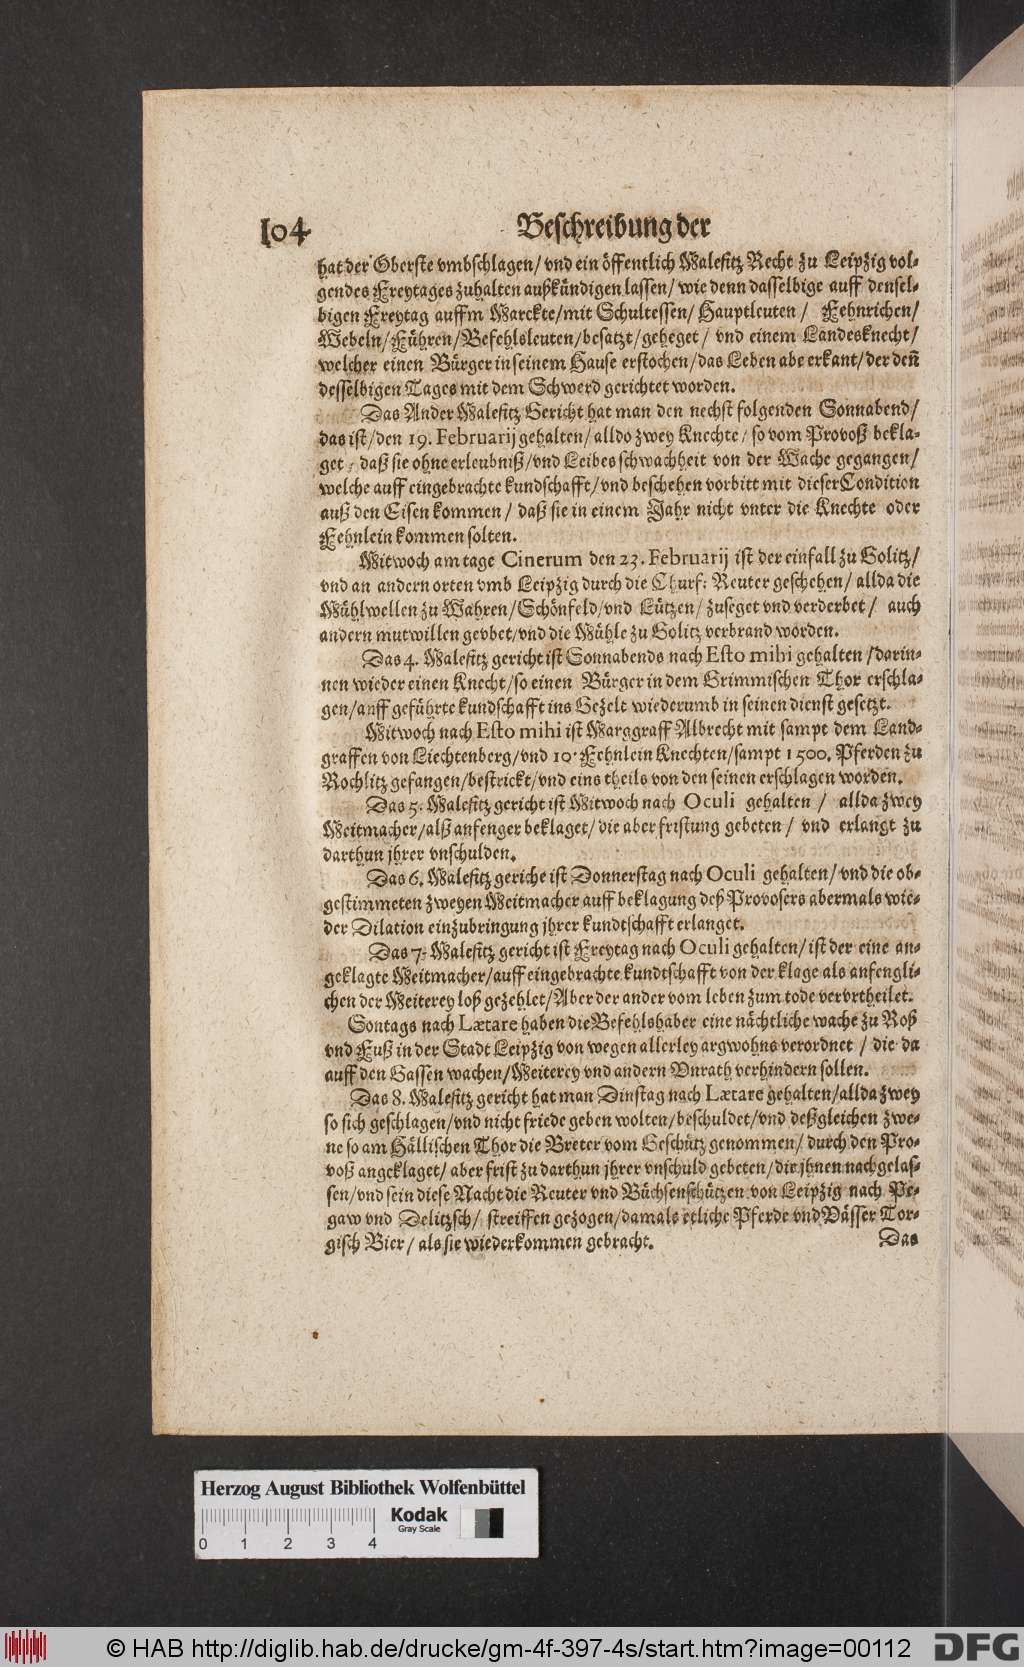 104 Beschreibung der
hat der Oberste vmbschlagen/ vnd ein öffentlich Malefitz Recht zu Leipzig vol-
gendes Freytages zuhalten außkündigen lassen/ wie denn dasselbige auff densel-
bigen Freytag auffm Marckte/mit Schultessen/ Hauptleuten / Fehnrichen/
Webeln/Führen/Befehlsleuten/besatzt/geheget/ vnd einem Landesknecht/
welcher einen Bürger in seinem Hause erstochen/das Leben abe erkant/der deñ
desselbigen Tages mit dem Schwerd gerichtet worden.
Das Ander Malefitz Gericht hat man den nechst folgenden Sonnabend/
das ist/den 19. Februarij gehalten/alldo zwey Knechte/ so vom Provoß bekla-
get, daß sie ohne erleubniß/vnd Leibesschwachheit von der Wache gegangen/
welche auff eingebrachte kundschafft/vnd beschehen vorbitt mit dieser Condition
auß den Eisen kommen/ daß sie in einem Jahr nicht vnter die Knechte oder
Fehnlein kommen solten.
Mitwoch am tage Cinerum den 23. Februarij ist der einfall zu Golitz/
vnd an andern orten vmb Leipzig durch die Churf: Reuter geschehen/ allda die
Mühlwellen zu Wahren/Schönfeld/vnd Lützen/ zuseget vnd verderbet/ auch
andern mutwillen gevbet/vnd die Mühle zu Golitz verbrand worden.
Das 4. Malefitz gericht ist Sonnabends nach Esto mihi gehalten/darin-
nen wieder einen Knecht/so einen Bürger in dem Grimmischen Thor erschla-
gen/auff geführte kundschafft ins Gezelt wiederumb in seinen dienst gesetzt.
Mitwoch nach Esto mihi ist Marggraff Albrecht mit sampt dem Land-
graffen von Liechtenberg/vnd 10 Fehnlein Knechten/sampt 1500. Pferden zu
Rochlitz gefangen/bestrickt/vnd eins theils von den seinen erschlagen worden.
Das 5. Malefitz gericht ist Mitwoch nach Oculi gehalten / allda zwey
Meitmacher/alß anfenger beklaget/die aber fristung gebeten/ vnd erlangt zu
darthun jhrer vnschulden.
Das 6. Malefitz geriche ist Donnerstag nach Oculi gehalten/vnd die ob-
gestimmeten zweyen Meitmacher auff beklagung deß Provosers abermals wie-
der Dilation einzubringung jhrer kundtschafft erlanget.
Das 7. Malefitz gericht ist Freytag nach Oculi gehalten/ist der eine an-
geklagte Meitmacher/auff eingebrachte kundtschafft von der klage als anfengli-
chen der Meiterey loß gezehlet/Aber der ander vom leben zum tode vervrtheilet.
Sontags nach Lætare haben die Befehlshaber eine nächtliche wache zu Roß
vnd Fuß in der Stadt Leipzig von wegen allerley argwohns verordnet / die da
auff den Gassen wachen/Meiterey vnd andern Vnrath verhindern sollen.
Das 8. Malefitz gericht hat man Dinstag nach Lætare gehalten/allda zwey
so sich geschlagen/vnd nicht friede geben wolten/beschuldet/vnd deßgleichen zwe-
ne so am Hällischen Thor die Breter vom Geschütz genommen/ durch den Pro-
voß angeklaget/ aber frist zu darthun jhrer vnschuld gebeten/die jhnen nachgelas-
sen/vnd sein diese Nacht die Reuter vnd Büchsenschützen von Leipzig nach Pe-
gaw vnd Delitzsch/ streiffen gezogen/damals etliche Pferde vnd Vässer Tor-
gisch Bier/ als sie wiederkommen gebracht. Das
Herzog August Bibliothek Wolfenbüttel
Kodak
Gray Scale
0 1 2 3 4
© HAB http://diglib.hab.de/drucke/gm-4f-397-4s/start.htm?image=00112
DFG